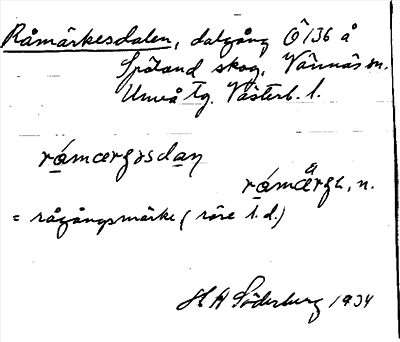 Råmärkesdalen, dalgång Ö 136 å
Spöland skog, Vännäs sn.
Umeå tg. Västerb. l.
råmærgsdaņ
råmärgh, n.
= rågångsmärke (röre t.d.)
H A Söderberg 1934